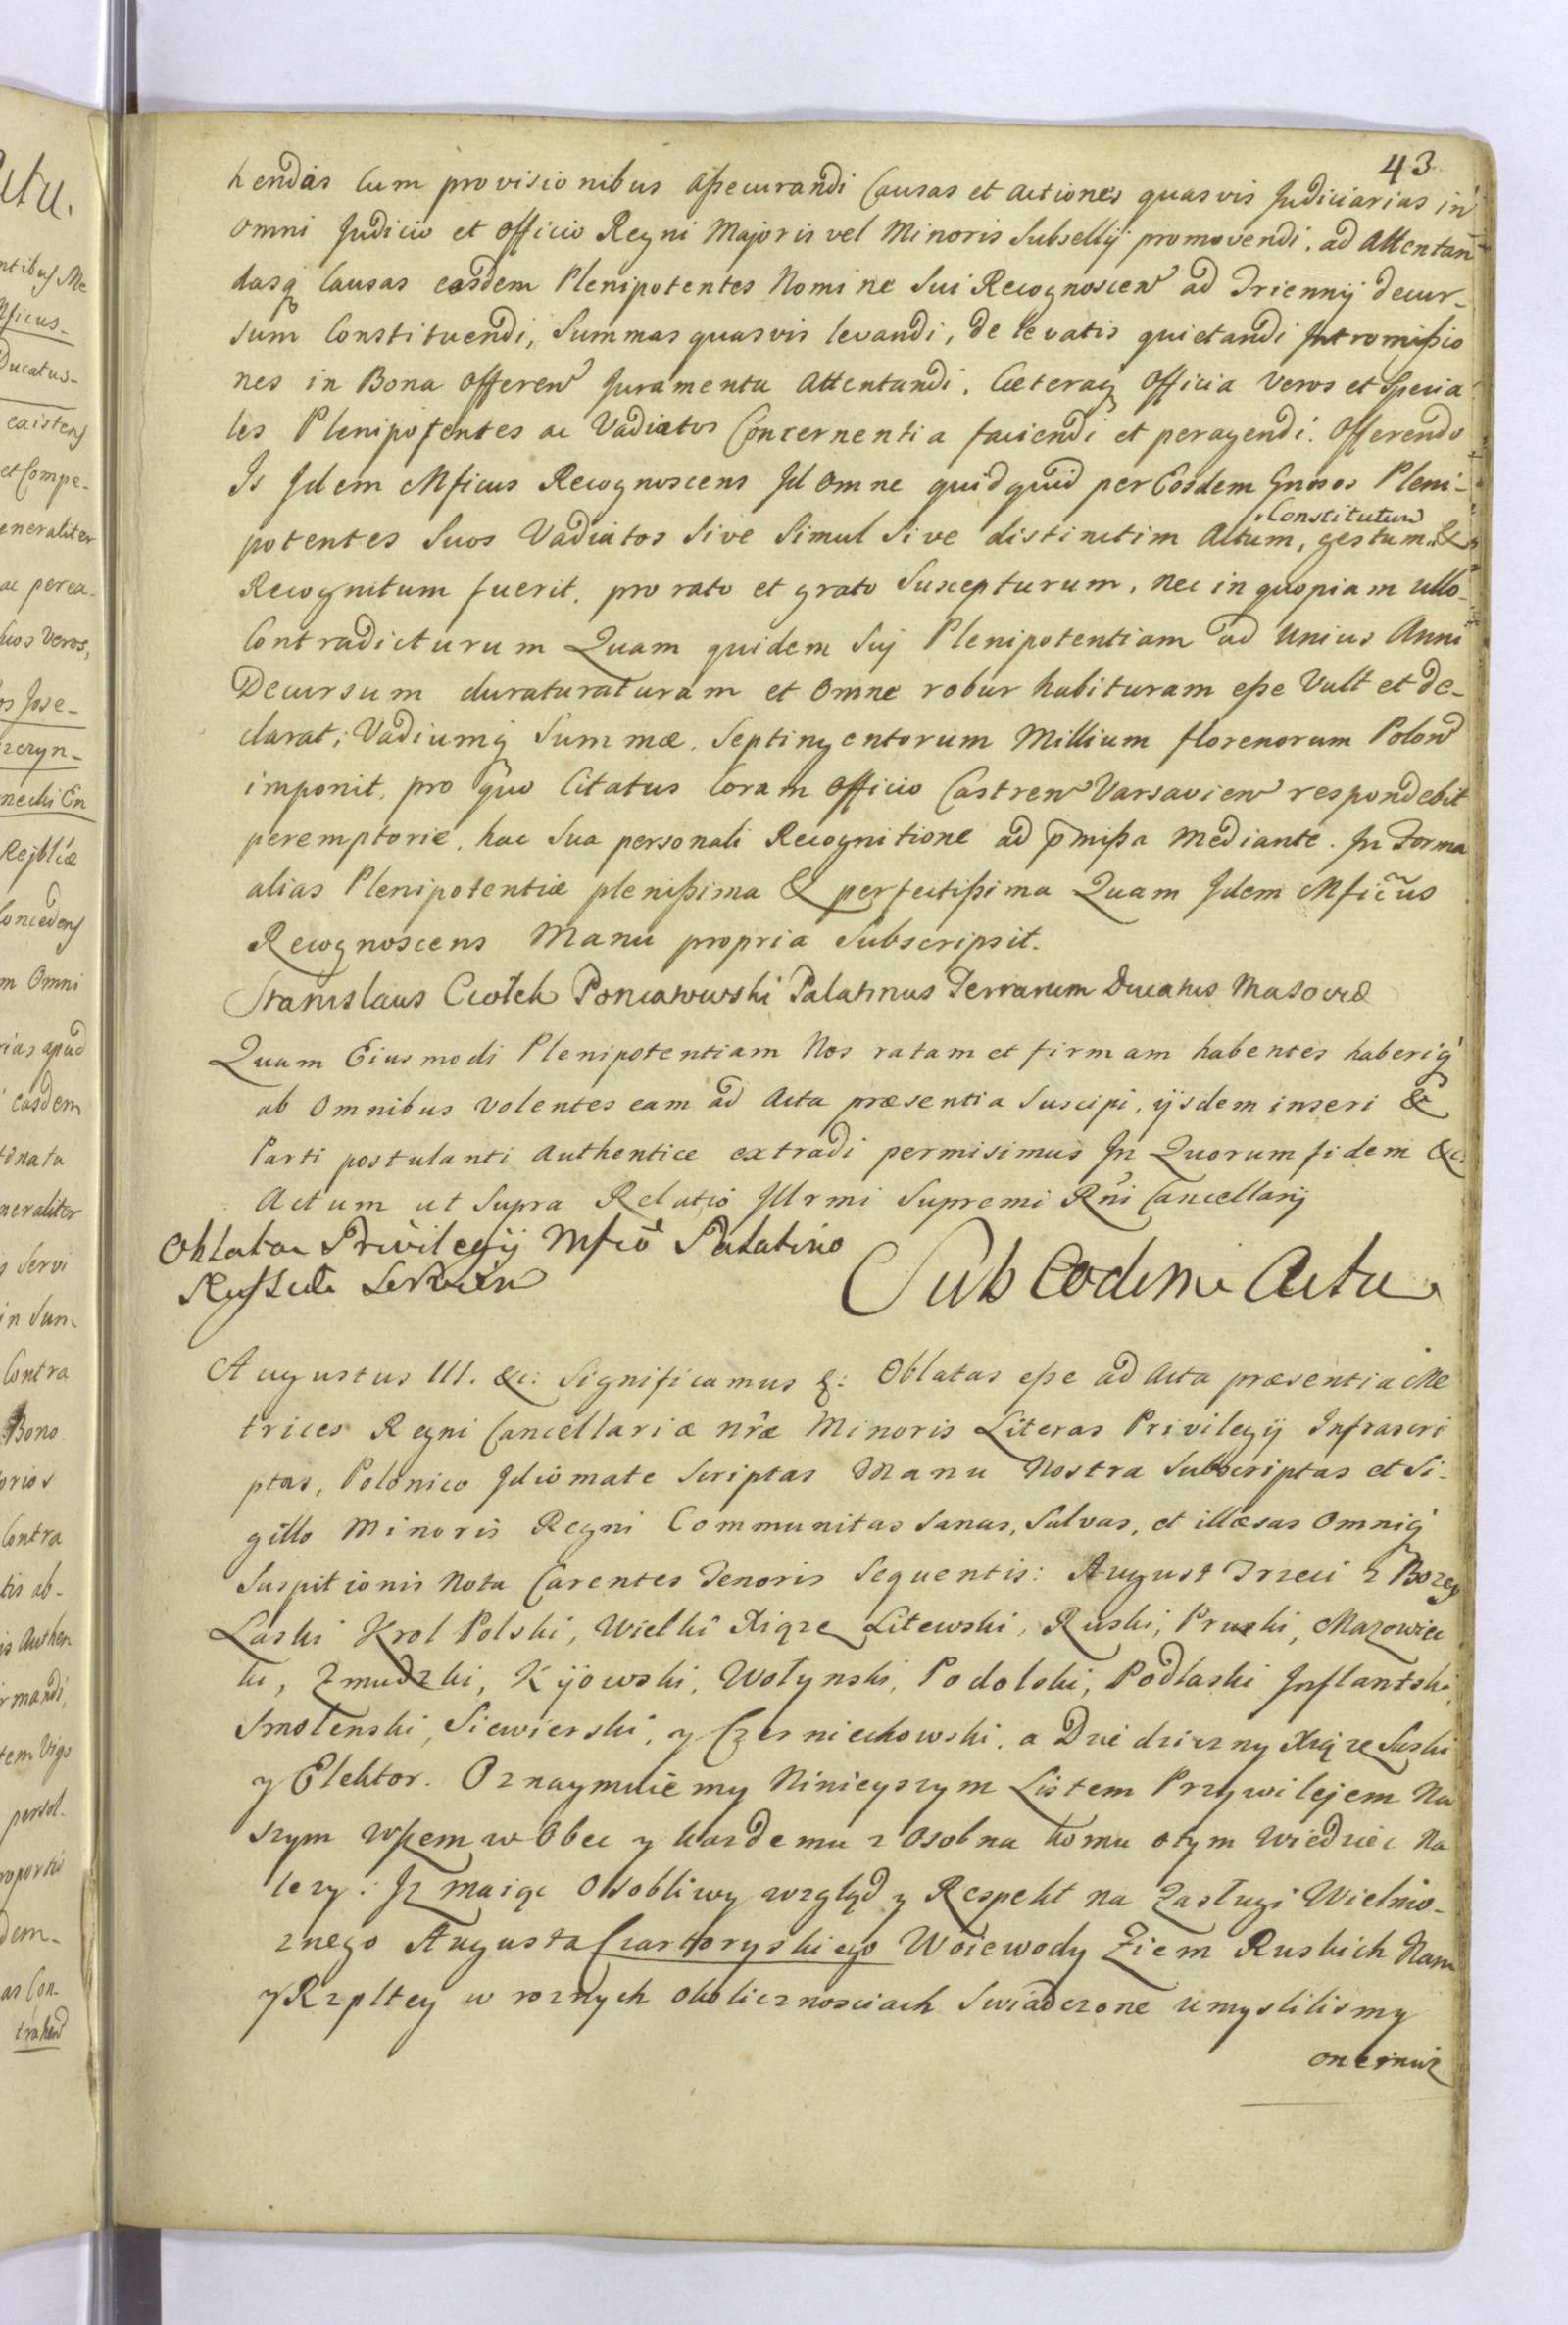 43
hendas Cum provisionibus assecurandi Causas et actiones quasvis Judiciarias in
omni Judicio et Officio Regni Majoris vel Minoris Subsellij promovendi, ad Attentan
dasq̃ Causas easdem Plenipotentes Nomine Sui Recognoscen ad Triennij decur-
sum Constituendi, Summas quasvis levandi, de levatis quietandi Intromissio
nes in Bona Offeren Juramenta Attentandi, Cæteraq̃ Officia veros et Specia
les Plenipotentes ac Vadiatos Concernentia faciendi et peragendi. Offerendo
Is Idem Mficus Recognoscens Id omne quidquid per Eosdem Gnosos Pleni-
potentes Suos Vadiatos Sive Simul Sive distinctim Actum, gestum, Constitutum &
Recognitum fuerit, pro rato et grato Suscepturum, nec in quopiam ullo
Contradicturum Quam quidem Sui Plenipotentiam ad unius Anni
Decursum duraturaturam et omne robur habituram esse Vult et de-
clarat; Vadiumq̃ Summæ Septingentorum Millium florenorum Polon
imponit, pro quo Citatus Coram Officio Castren Varsavien respondebit
peremptorie, hac Sua personali Recognitione ad p̄missa Mediante. In Forma
alias Plenipotentiæ plenissima & perfectissima Quam Idem Mficũs
Recognoscens Manu propria Subscripsit.
Stanislaus Ciołek Poniatowski Palatinus Terrarum Ducatus Masoviæ
Quam Eiusmodi Plenipotentiam Nos ratam et firmam habentes haberiq̃
ab Omnibus volentes eam ad Acta præsentia Suscipi, ijsdem inseri &
Parti postulanti Authentice extradi permisimus In Quorum fidem &c:
Actum ut Supra Relatio Illrmi Supremi Rñi Cancellarij
Oblatae Privilegij Mfico Palatino
Russiæ Servien
Sub Eodem Actu
Augustus III. &c: Significamus &: Oblatas esse ad Acta præsentia Me
trices Regni Cancellariæ nr̃æ Minoris Literas Privilegij Infrascri
ptas, Polonico Idiomate Scriptas Manu Nostra Subscriptas et Si-
gillo Minoris Regni Communitas Sanas, Salvas, et illæsas Omniq̃
Suspitionis Nota Carentes Tenoris Sequentis: August Trzeci z Bozey
Laski Krol Polski, Wielki Xiąze Litewski, Ruski, Pruski, Mazowiec
ki, Zmudzki, Kijowski, Wołynski, Podolski, Podlaski Inflantski,
Smolenski, Siewierski, y Czerniechowski, a Dziedziczny Xiąze Saski
y Elektor. Oznaymuiemy Ninieyszym Listem Przywilejem Na
szym wssem w Obec y kazdemu z Osobna komu o tym Wiedziec Na
lezy: Iz maiąc Osobliwy wzgląd y Respekt na Zasługi Wielmo-
znego Augusta Czartoryskiego Woiewody Ziem Ruskich Nam
y Rzpltey w roznych okolicznosciach Swiadczone umyslilismy
onemuz